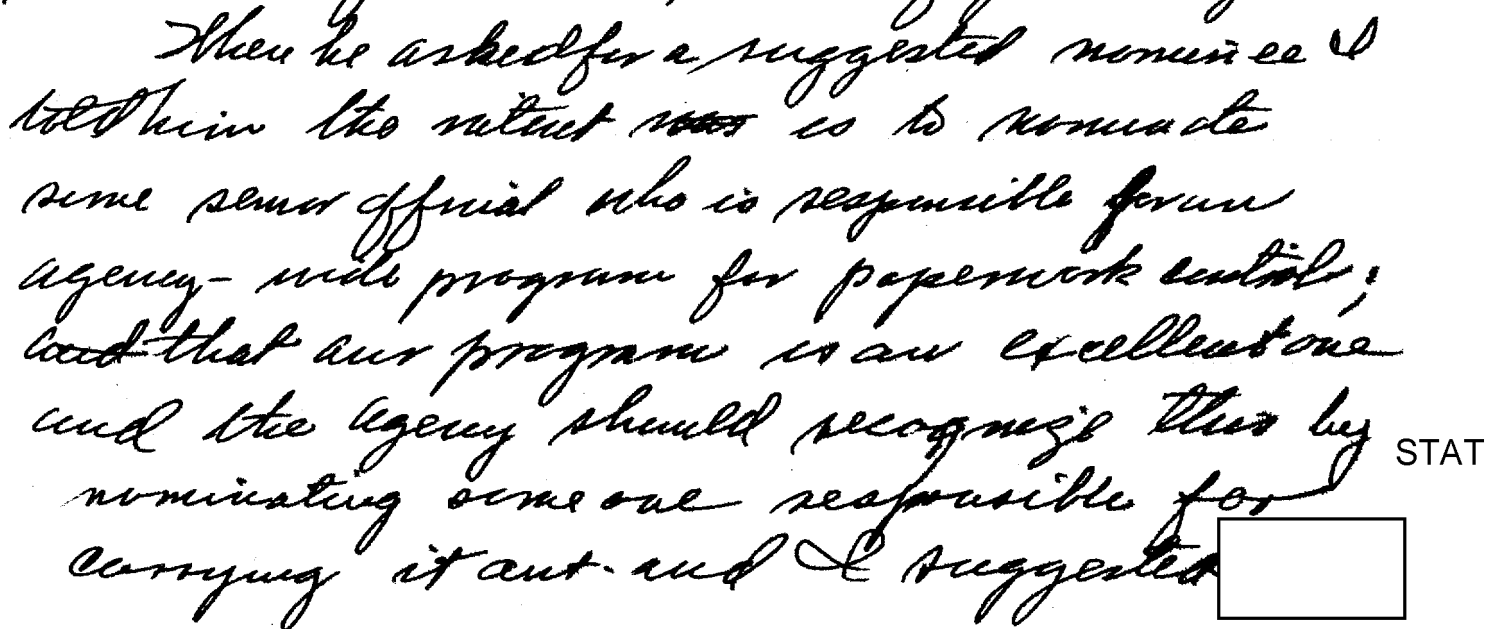 When he asked for a suggested nominee I
told him the intent was is to nominate
some senior official who is responsible for an
agency-wide program for paperwork control;
and that our program is an excellent one
and the agency should recognize this by
STAT
nominating someone responsible for
carrying it out. and I suggested